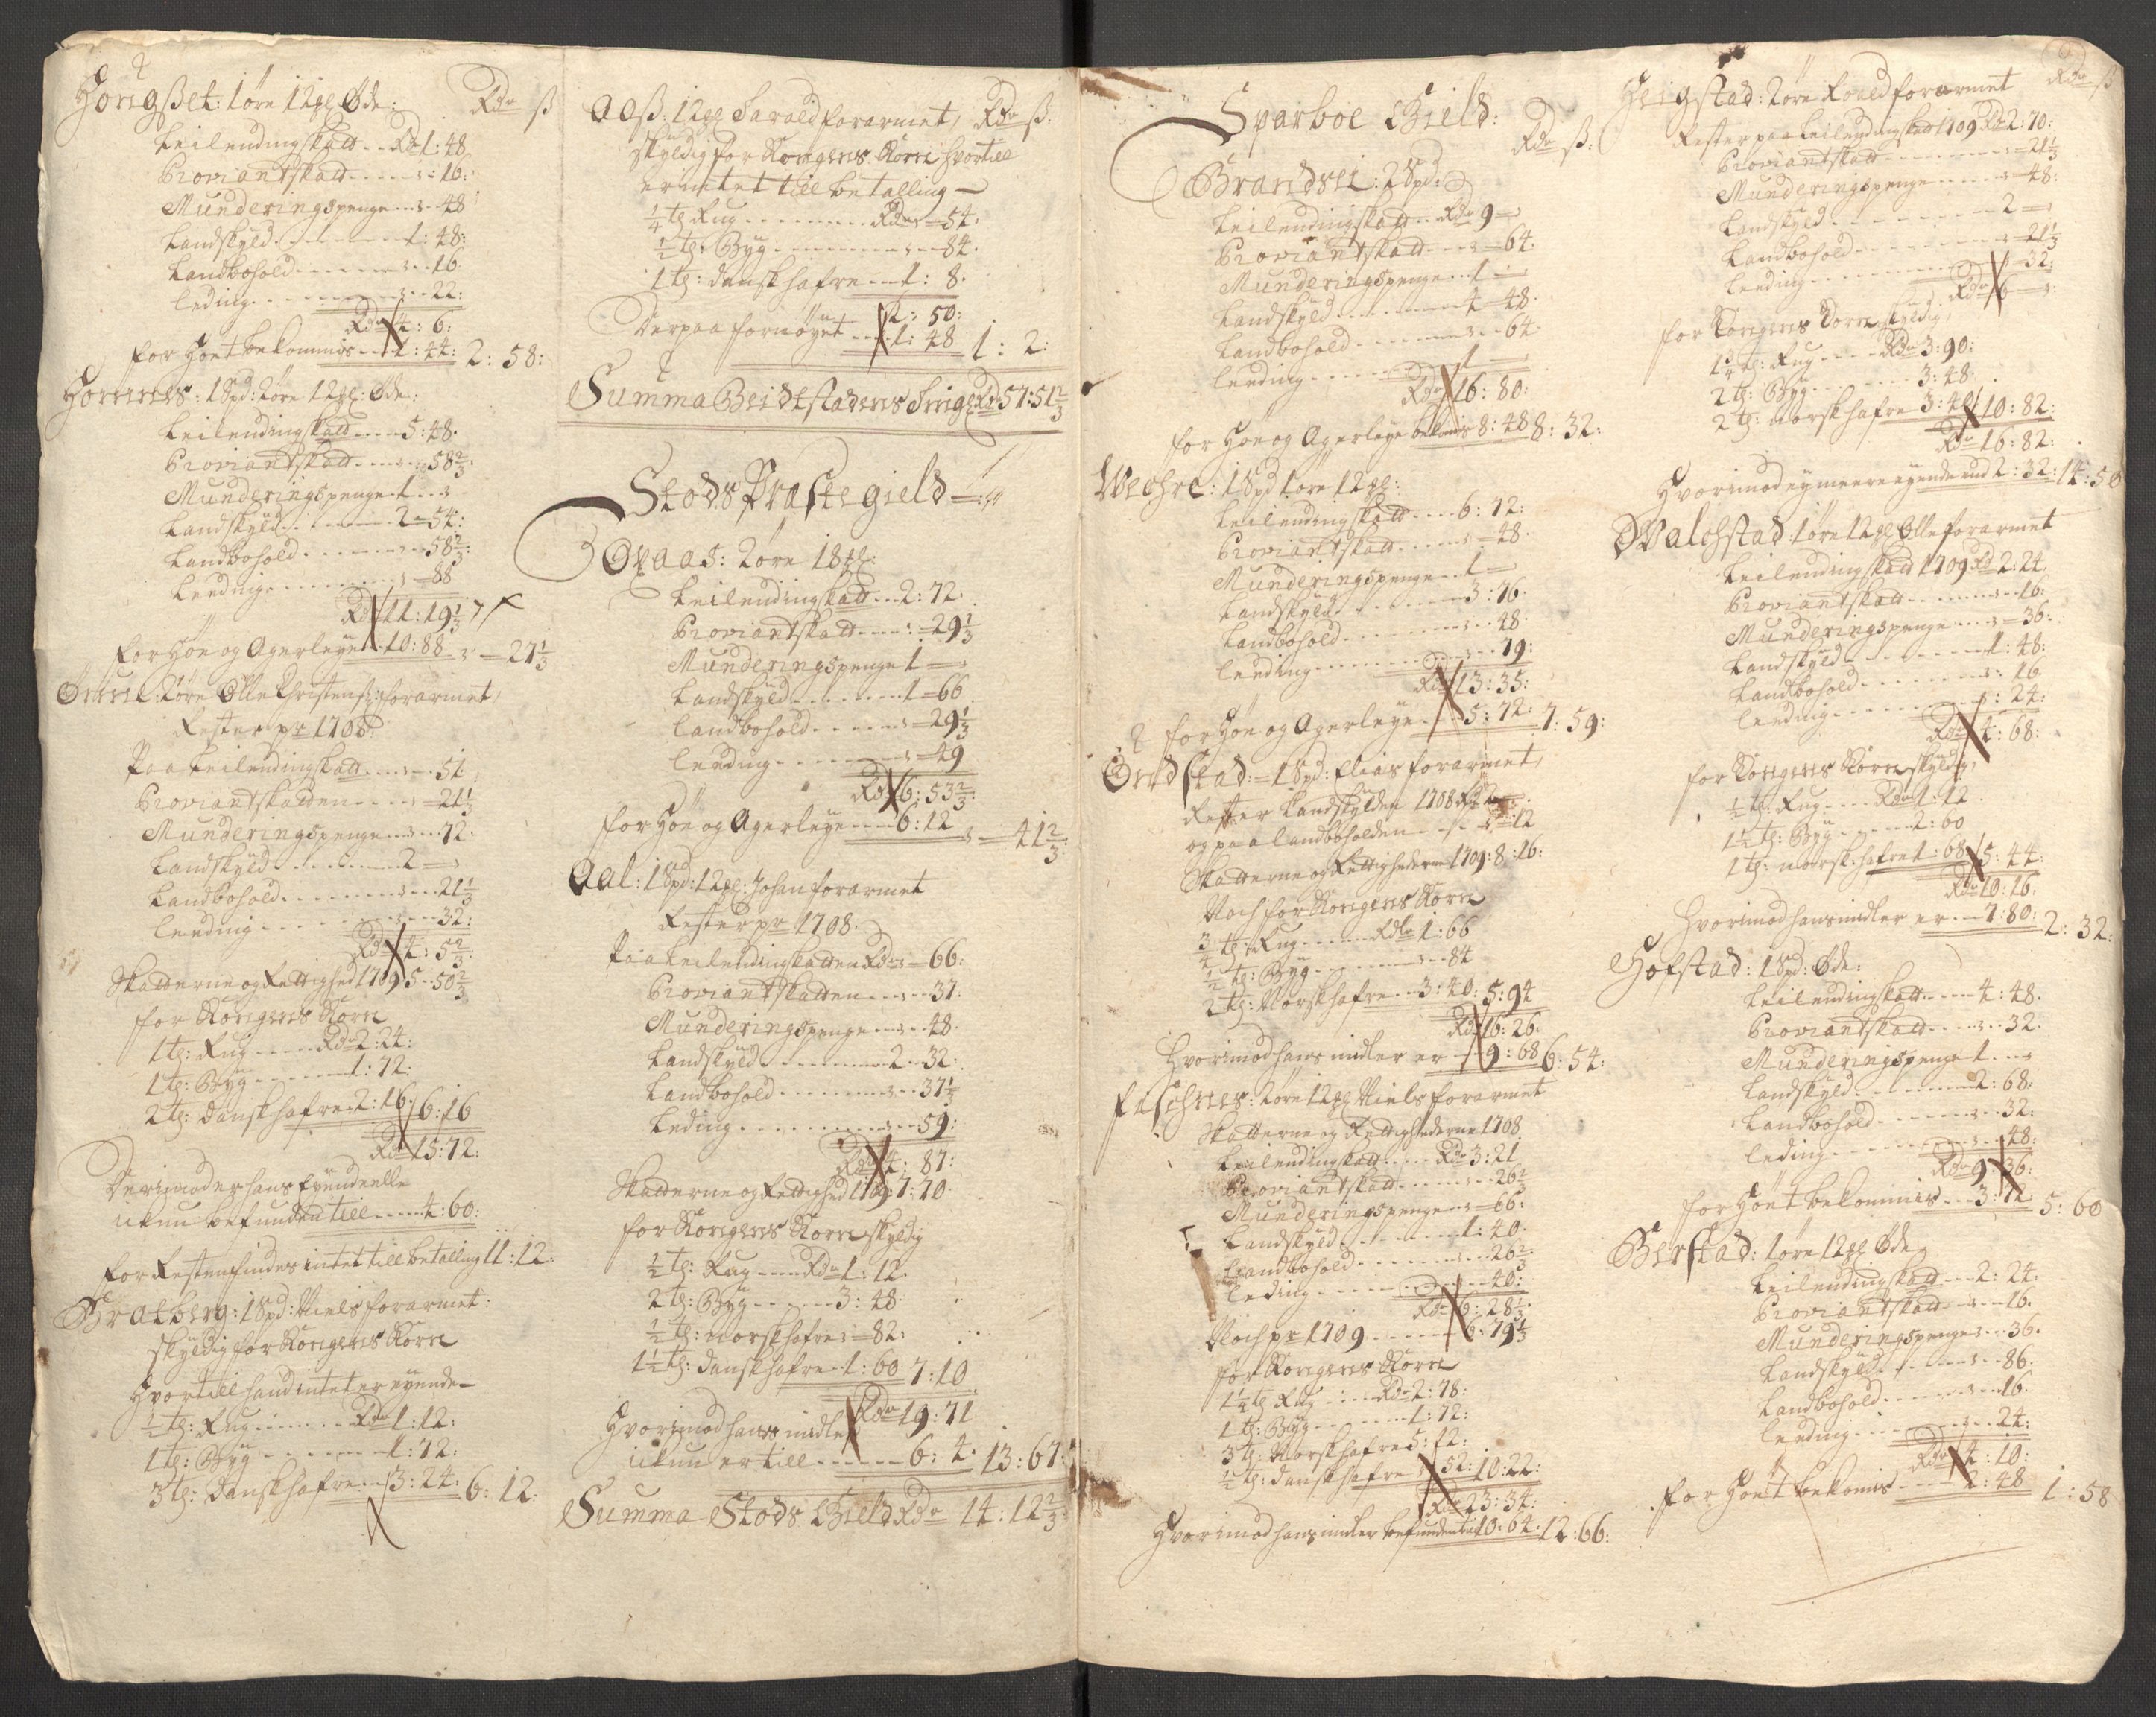 Hongßet: 1 øre 12 gl Øde: Rdr ß
Leilendingskatt .. Rdr 1: 48
Proviantskatt ..... - : 16:
Munderingspenge ... - 48
Landskyld ........ 1: 48:
Landbohold ....... - 16
leding .......... - 22:
Rdr 4: 6:
for Høet bekommis ... 1: 44: 2: 58:
Hornnes: 1 Spd: 2 øre 12 gl: Øde:
Leilendingskatt .... 5: 48.
Proviantskatt ..... - 58 2/3:
Munderingspenge 1 .. -
Landskyld ....... 2 - 54:
Landbohold ....... - 58 2/3:
Leeding. ........ - 88
Rdr 11: 19 1/3
for Høe og Agerleye 10: 88 - 27 1/3
2 øre Olle Christens: forarmet,
Rester pr 1708.
Paa Leilendingskatt .... - 51
Proviantskatten .... - 21 1/3
Munderingspenge ... - 72.
Landskyld ....... 2 -
Landbohold ........ - 21 1/3
leeding ........ - 32:
Rdr 4: 5 2/3
Skatterne og Rettighed 1709 5 - 50 2/3
for Kongens Korn
1 tß: Rug ..... Rdr 2: 24:
1 tß: Byg ....... 1: 72:
2 tß: dansk hafre 2: 16. 6: 16
Rdr 15: 72:
Derimoder hans Eyendeelle
ickun befunden till ..... 4: 60:
for Resten findes intet till betalling 11: 12.
Bratberg: 1 Spd: Niels forarmet:
skyldig for Kongens Korn
Hvortill hand intet er eyende -
1/2 tß: Rug ...... Rdr 1: 12:
1 tß: Byg ....... 1: 72:
3 tß: dansk hafre .. 3: 24: 6: 12.
Aaß: 12 gl Harald forarmet, Rdr ß.
skyldig for Kongens Korn hvortill
er intet till betalling -
1/4 tß Rug ........ Rdr - 54:
1/2 tß: Byg ......... - 84.
1 tß: dansk hafre .... 1: 8.
2: 50:
Derpaa fornøyet ... 1: 48 1: 2:
Summa Beidtstadens Tinge Rdr 57: 51 2/3
Stods Præstegield
Opaas: 2 øre 18 gl:
Leilendingskatt ... 2: 72.
Proviantskatt .... - 29 1/3
Munderingspenge 1 -
Landskyld ....... 1 - 66
Landbohold ...... - 29 1/3
leeding ........ - 49
Rdr 6: 53 2/3:
for Høe og Agerleye .... 6: 12 - 41 2/3:
Aal: 1 Spd: 12 gl: Johan forarmet
Rester pr 1708.
Paa Leilendingskatten Rdr - 66:
Proviantskatten .... - 37:
Munderingspenge ... - 48.
Landskyld ......... 2 - 32:
Landbohold ....... - 37 1/3
Leding ......... - 59:
Rdr 4: 87:
Skatterne og Rettighed 1709: 7: 70.
for Kongens Korn skyldig
1/2 tß: Rug .... Rdr 1: 12.
2 tß: Byg ...... 3: 48.
1/2 tß: norsk hafre - 82:
1 1/2 tß: dansk hafre .. 1: 60 7: 10
Rdr 19: 71
Hvorimod hans midle
ickun er till ...... 6: 4. 13: 67:
Summa Stods Gield Rdr 14: 12 2/3
Sparboe Gield: Rdr ß.
Brandsei: 2 Spd:
Leilendingskatt .. Rdr 9 -
Proviantskatt .... - 64.
Munderingspenge .. 1 -
Landskyld ........ 4 - 48.
Landbohold ....... - 64
leeding ....... 1 -
Rdr 16: 80:
for Høe og Agerleye bekomis 8: 48 8: 32:
Wechre: 1 Spd 1 øre 12 gl:
Leilendingskatt .... 6: 12:
Proviantskatt ...... - 48.
Munderingspenge .. 1 -
Landskyld ........ 3: 76.
Landbohold ....... - 48.
leeding ......... - 19:
Rdr 13: 35:
for Høe og Agerleye ... 5: 72. 7: 59:
Øendstad: 1 Spd: Elias forarmet,
Rester Landskylden 1708 Rdr 2 -
og paa landboholden ... - 12
Skatterne og Rettighederne 1709: 8: 16:
Noch for Kongens Korn
3/4 tß: Rug ..... Rdr 1: 66
1/2 tß: Byg ........ - 84
2 tß: Norsk hafre .. 3: 40: 5: 94
Rdr 16: 26:
Hvorimod hans midler er ... 9: 68 6: 54:
2 øre 12 gl Niels forarmet
Skatterne og Rettighederne 1708
Leilendingskatt .... Rdr 3: 21
Proviantskatt ...... - 26 2/3
Munderingspenge .. - 66:
Landskyld ........ 1: 40.
Landbohold ........ - 26 2/3
leding ........ - 40:
Rdr 6: 28 1/3.
Noch pr 1709 ...... 6: 79 1/3
for Kongens Korn
1 1/4 tß Rug .... Rdr 2: 78:
1 tß: Byg ....... 1: 72:
3 tß: Norsk hafre 5: 12:
1/2 tß: dansk hafre - 52: 10: 22:
Rdr 23: 34:
Hvorimod hans midler befunden till 10. 64. 12: 66:
Heigstad: 2 øre Roald forarmet Rdr ß
Rester paa Leilendingskatt 1709 Rdr 2: 70:
Proviantskatt ....... - 21 1/3
Munderingspenge ..... - 48:
Landskyld ......... 2 -
Landbohold ........ - 21 1/3
leeding ......... - 32:
Rdr 6 -
for Kongens Korn skyldig,
1 3/4 tß: Rug .... Rdr 3: 90:
2 tß: Byg ...... 3: 48.
2 tß: norsk hafre 3: 40: 10: 82:
Rdr 16: 82:
Hvorimod ey meere eyende end 2: 32: 14: 50
Walchstad 1 øre 12 gl Olle forarmet
Leilendingskatt 1709 Rdr 2: 24.
Proviantskatt ...... - 16:
Munderingspenge ... - 36:
Landskyld ........ 1: 48:
Landbohold ........ - 16.
leeding ......... - 24:
Rdr 4: 68:
for Kongens Korn skyldig,
1/2 tß: Rug .... Rdr 1: 12
1 1/2 tß: Byg ..... 2: 60
1 tß: norsk hafre 1: 68: 5: 44:
Rdr 10: 16.
Hvorimod hans midler er .. 7: 80: 2: 32:
Hofstad: 1 Spd: Øde:
Leilendingskatt .... 4: 48.
Proviantskatt .... - 32.
Munderingspenge 1 ... -
Landskyld ....... 2: 68:
Landbohold ....... - 32:
leding ......... - 48:
Rdr 9: 36:
for Høet bekommis ... 3: 72 5: 60
Berstad: 1 øre 12 gl Øde,
Leilendingskatt ... 2: 24.
Proviantskatt ... - 16.
Munderingspenge - 36.
Landskyld ....... - 86.
Landbohold ...... - 16.
leeding ...... - 24:
Rdr 4: 10:
for Høet bekomis .... 2: 48 1: 58